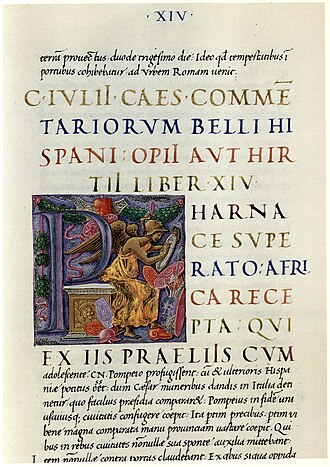 ·XIV·
terũ provectus duode trigesimo die: Ideo qđ tempestatibus ĩ
portubus cohibebatur ad Vrbem Romam venit.
C·IVLII·CAES·COMMẼ
TARIORVM BELLI HI
SPANI·OPII AVT HIR
TII LIBER·XIV·
PHARNA
CE SVPE
RATO: AFRI
CA RECE
PTA·QVI
EX IIS PRAELIIS CVM
adolescente·CN·Pompeio profugissent: cũ & ulterioris Hispa
niae potitus eēt: dum Caesar muneribus dandis in Italia deti
netur quo facilius praesidia compararet. Pompeius in fidem uni
uscuiusq. civitatis confugere coepit. Ita partim precibus: partim vi
bene magna comparata manu provinciam vastare coepit. Qui
bus in rebus civitates nonnullae sua sponte auxilia mittebant:
Item nonnullae contra portas claudebant. Ex quibus siqua oppida